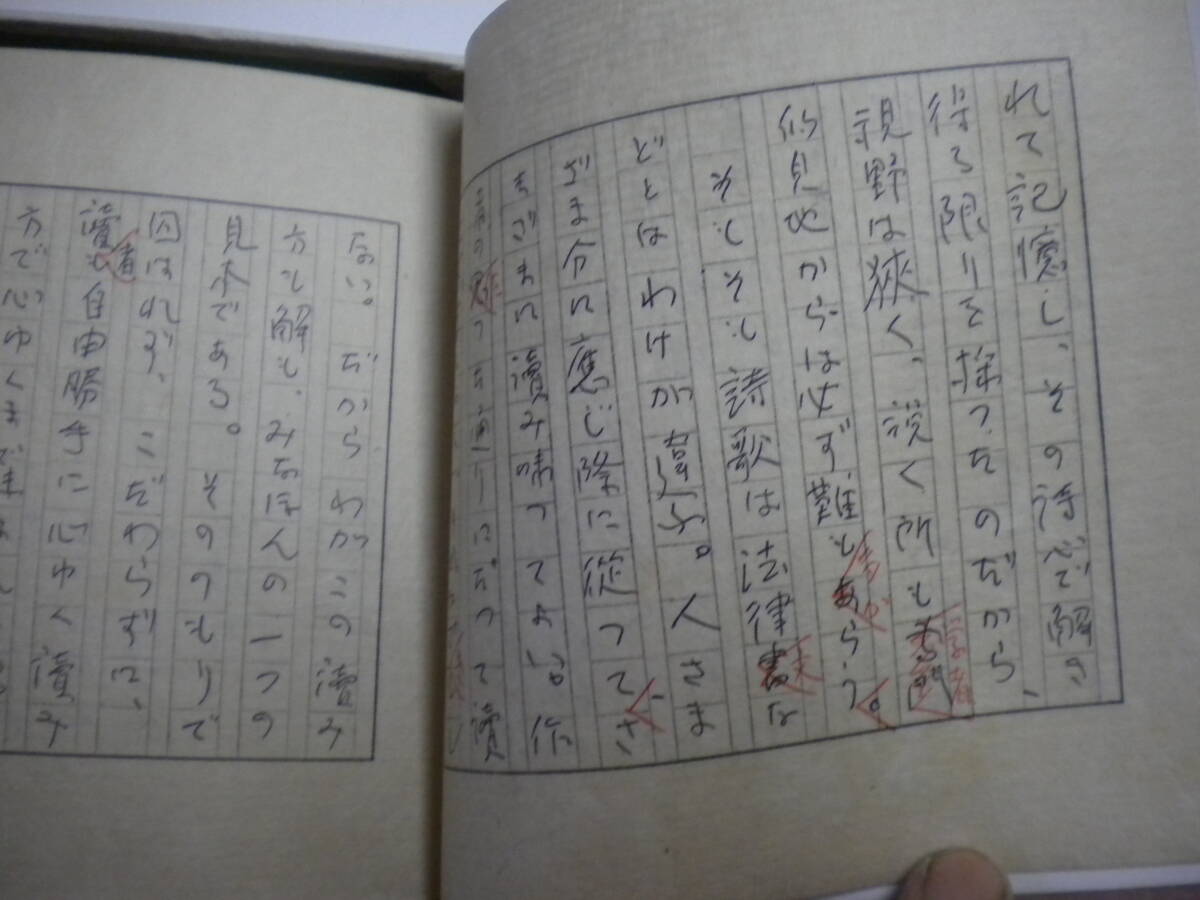 れて記憶し、その詩で解き
得る限りを探つたのだから、
視野は狭く、説く所も
的見地からは必ず難もあらう。
そもそも詩歌は法律な
どとはわけが違ふ。人さま
ざま分に應じ隙に従つて、さ
まざまに讀み味つてよい作
つて讀
ない。だからわがこの讀み
方も解も、みなほんの一つの
見本である。そのつもりで
囚はれず、こだわらずに、
讀者も自由勝手に心ゆく讀み
方で心ゆくまで